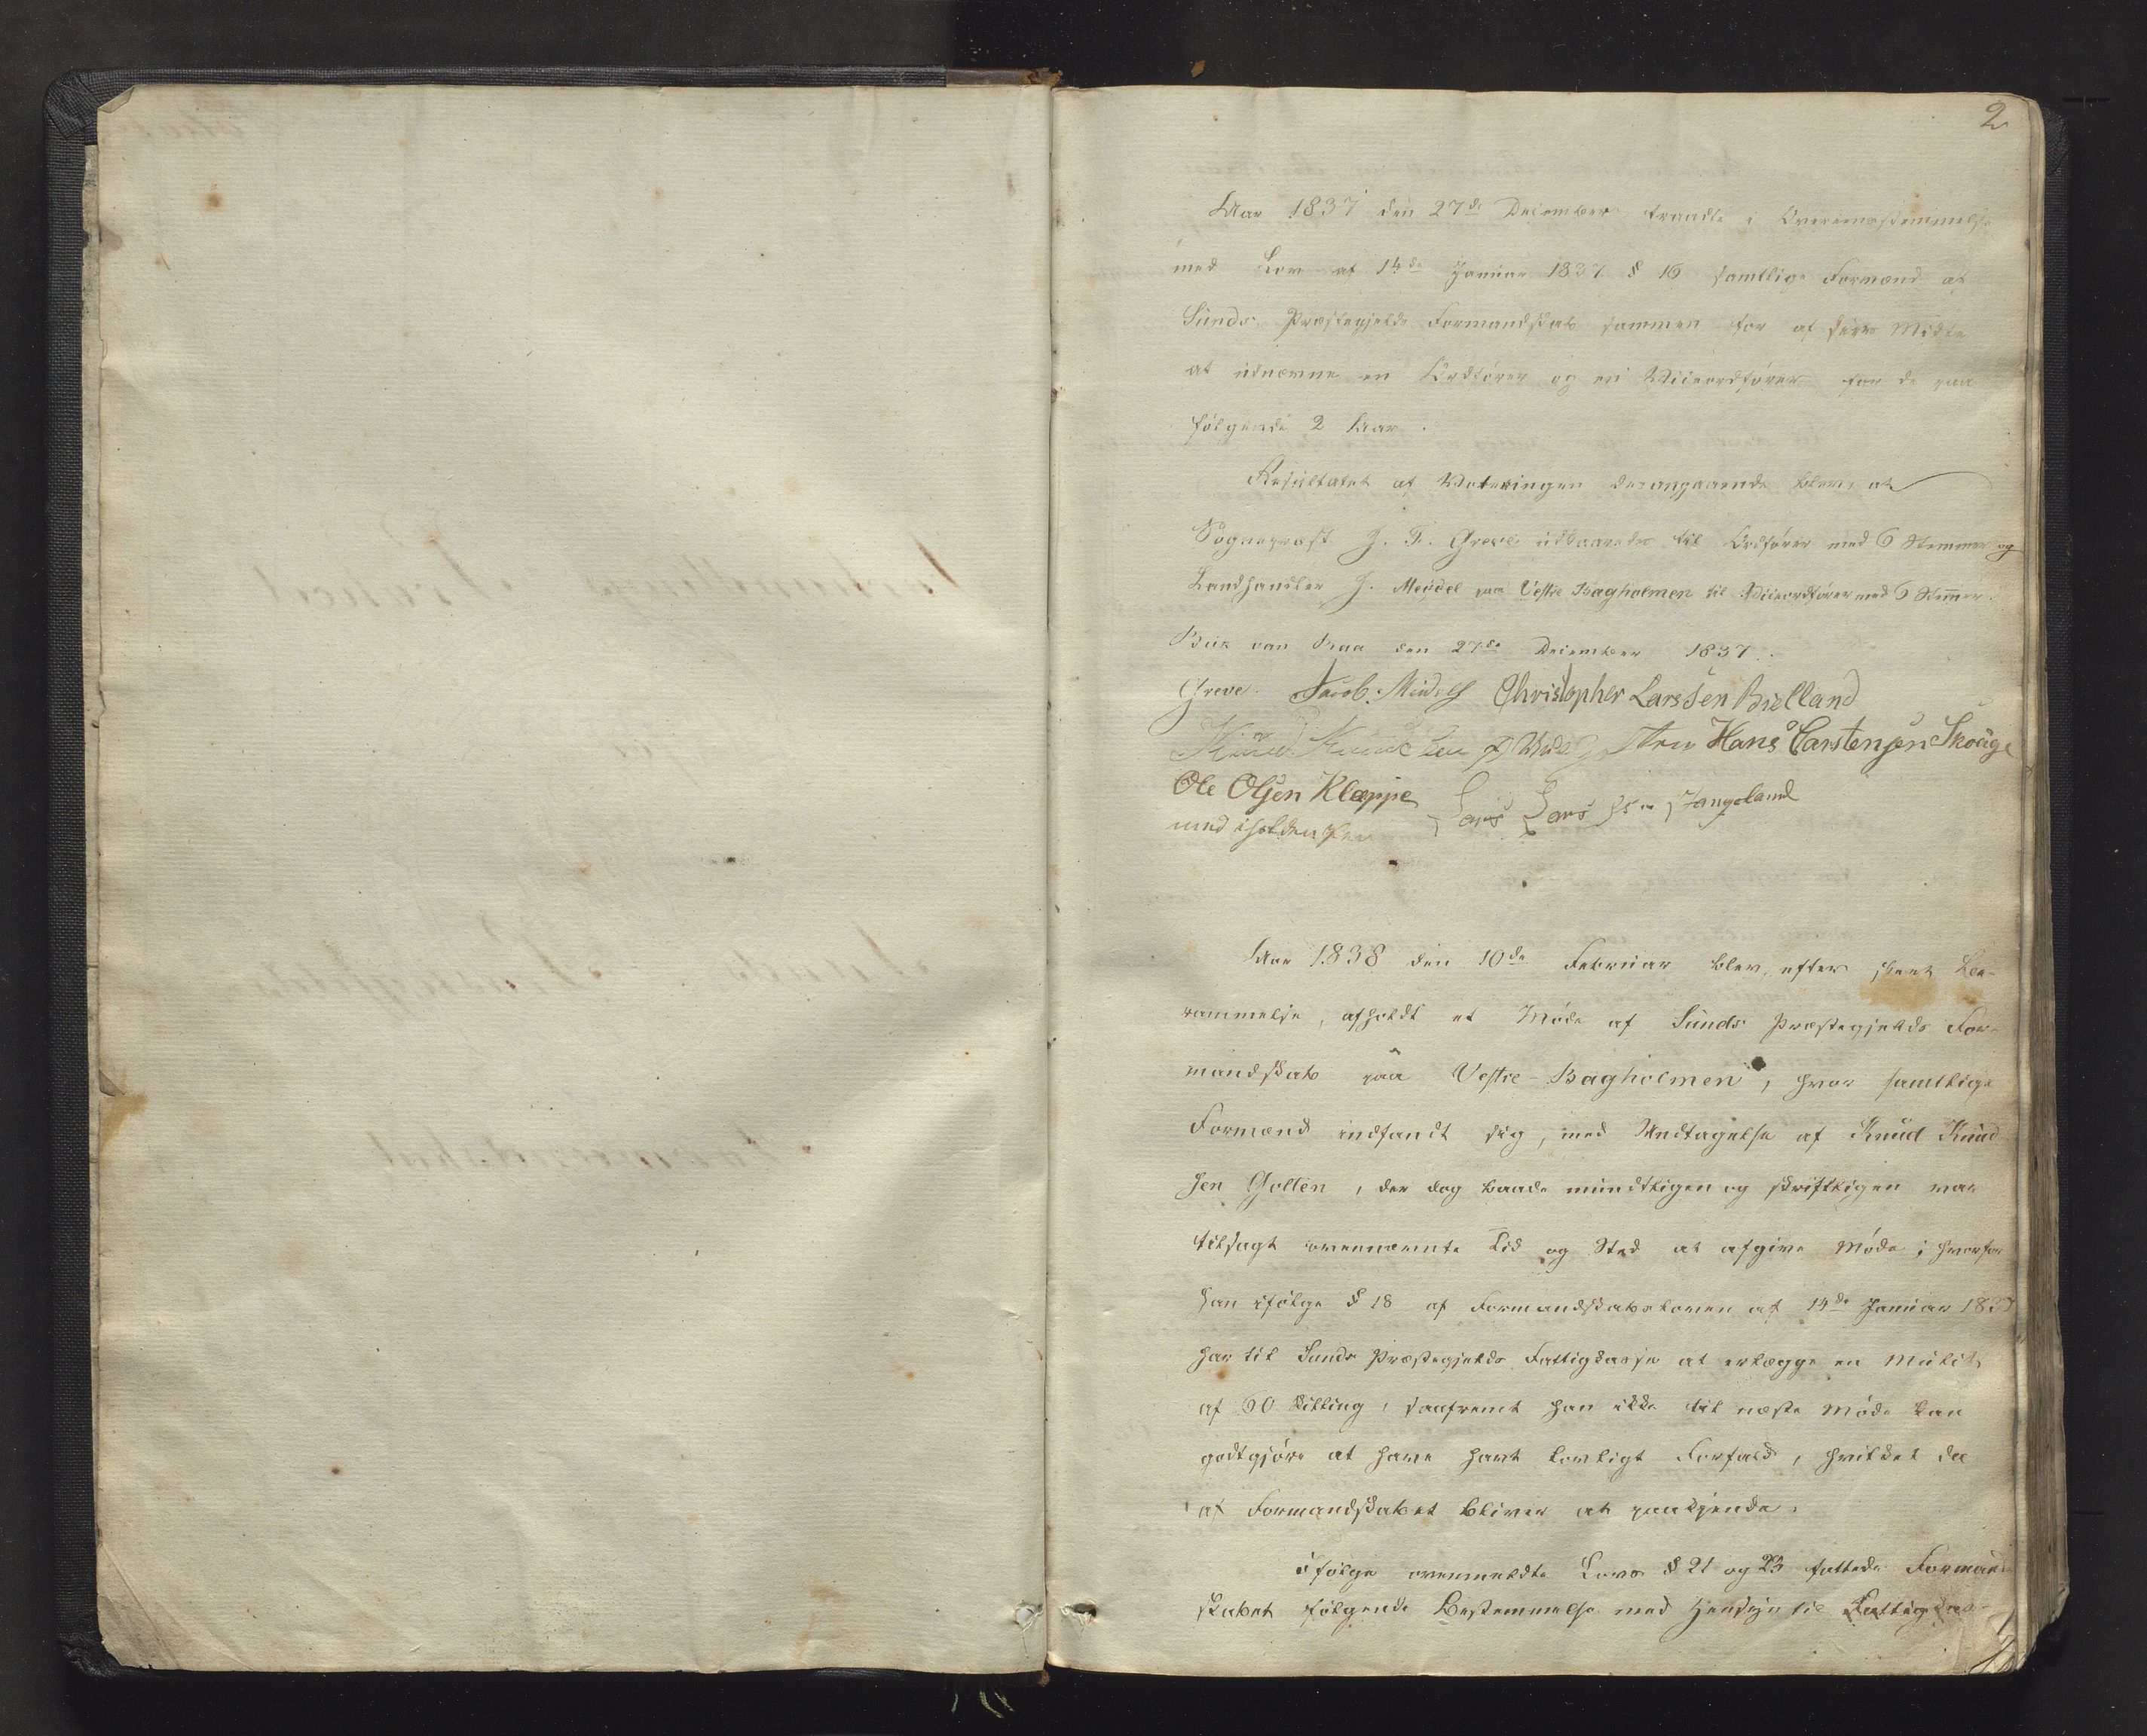 2
Aar 1837 den 27de December traadte i Overeensstemmelse
med Lov af 14de Januar 1837 § 16 samtlige Formænd af
Sunds Præstegjelds Formandskab sammen for af deres Midte
at udnævne en Ordfører og en Viceordfører for de paa
følgende 2 Aar.
Resultatet af Voteringen desangaaende blev, at
Sognepræst J. F. Greve udkaaredes til Ordfører med 6 Stemmer og
Landhandler J. Meidel paa Vestre Bagholmen til Viceordfører med 6 Stemmer.
den 27de December 1837.
Greve. Jacob Christopher Larssen Bielland
Knud Knudsen Hans Carstensen Skouge
Ole Olsen Klæppe Lars Larssen Tangeland
med iholden Pen
Aar 1838 den 10de Februar blev, efter skeet Be-
rammelse, afholdt et Møde af Sunds Præstegjelds For-
mandskab paa Vestre-Bagholmen, hvor samtlige
Formænd indfandt sig, med Undtagelse af Knud Knud
sen Golten, der dog baade mundtligen og skriftligen var
tilsagt ovennævnte Tid og Sted at afgive Møde; hvorfor
han ifølge § 18 af Formandskabsloven af 14de Januar 1837
har til Sunds Præstegjelds Fattigkasse at erlægge en Mulct
af 60 Skilling, saafremt han ikke til næste Møde kan
godtgjøre at have havt lovligt Forfald, hvilket da
af Formandskabet bliver at paakjende.
Ifølge ovenmeldte Lovs § 21 og 23 fattede Formand
skabet følgende Bestemmelse med Hensyn til Fattigkas-